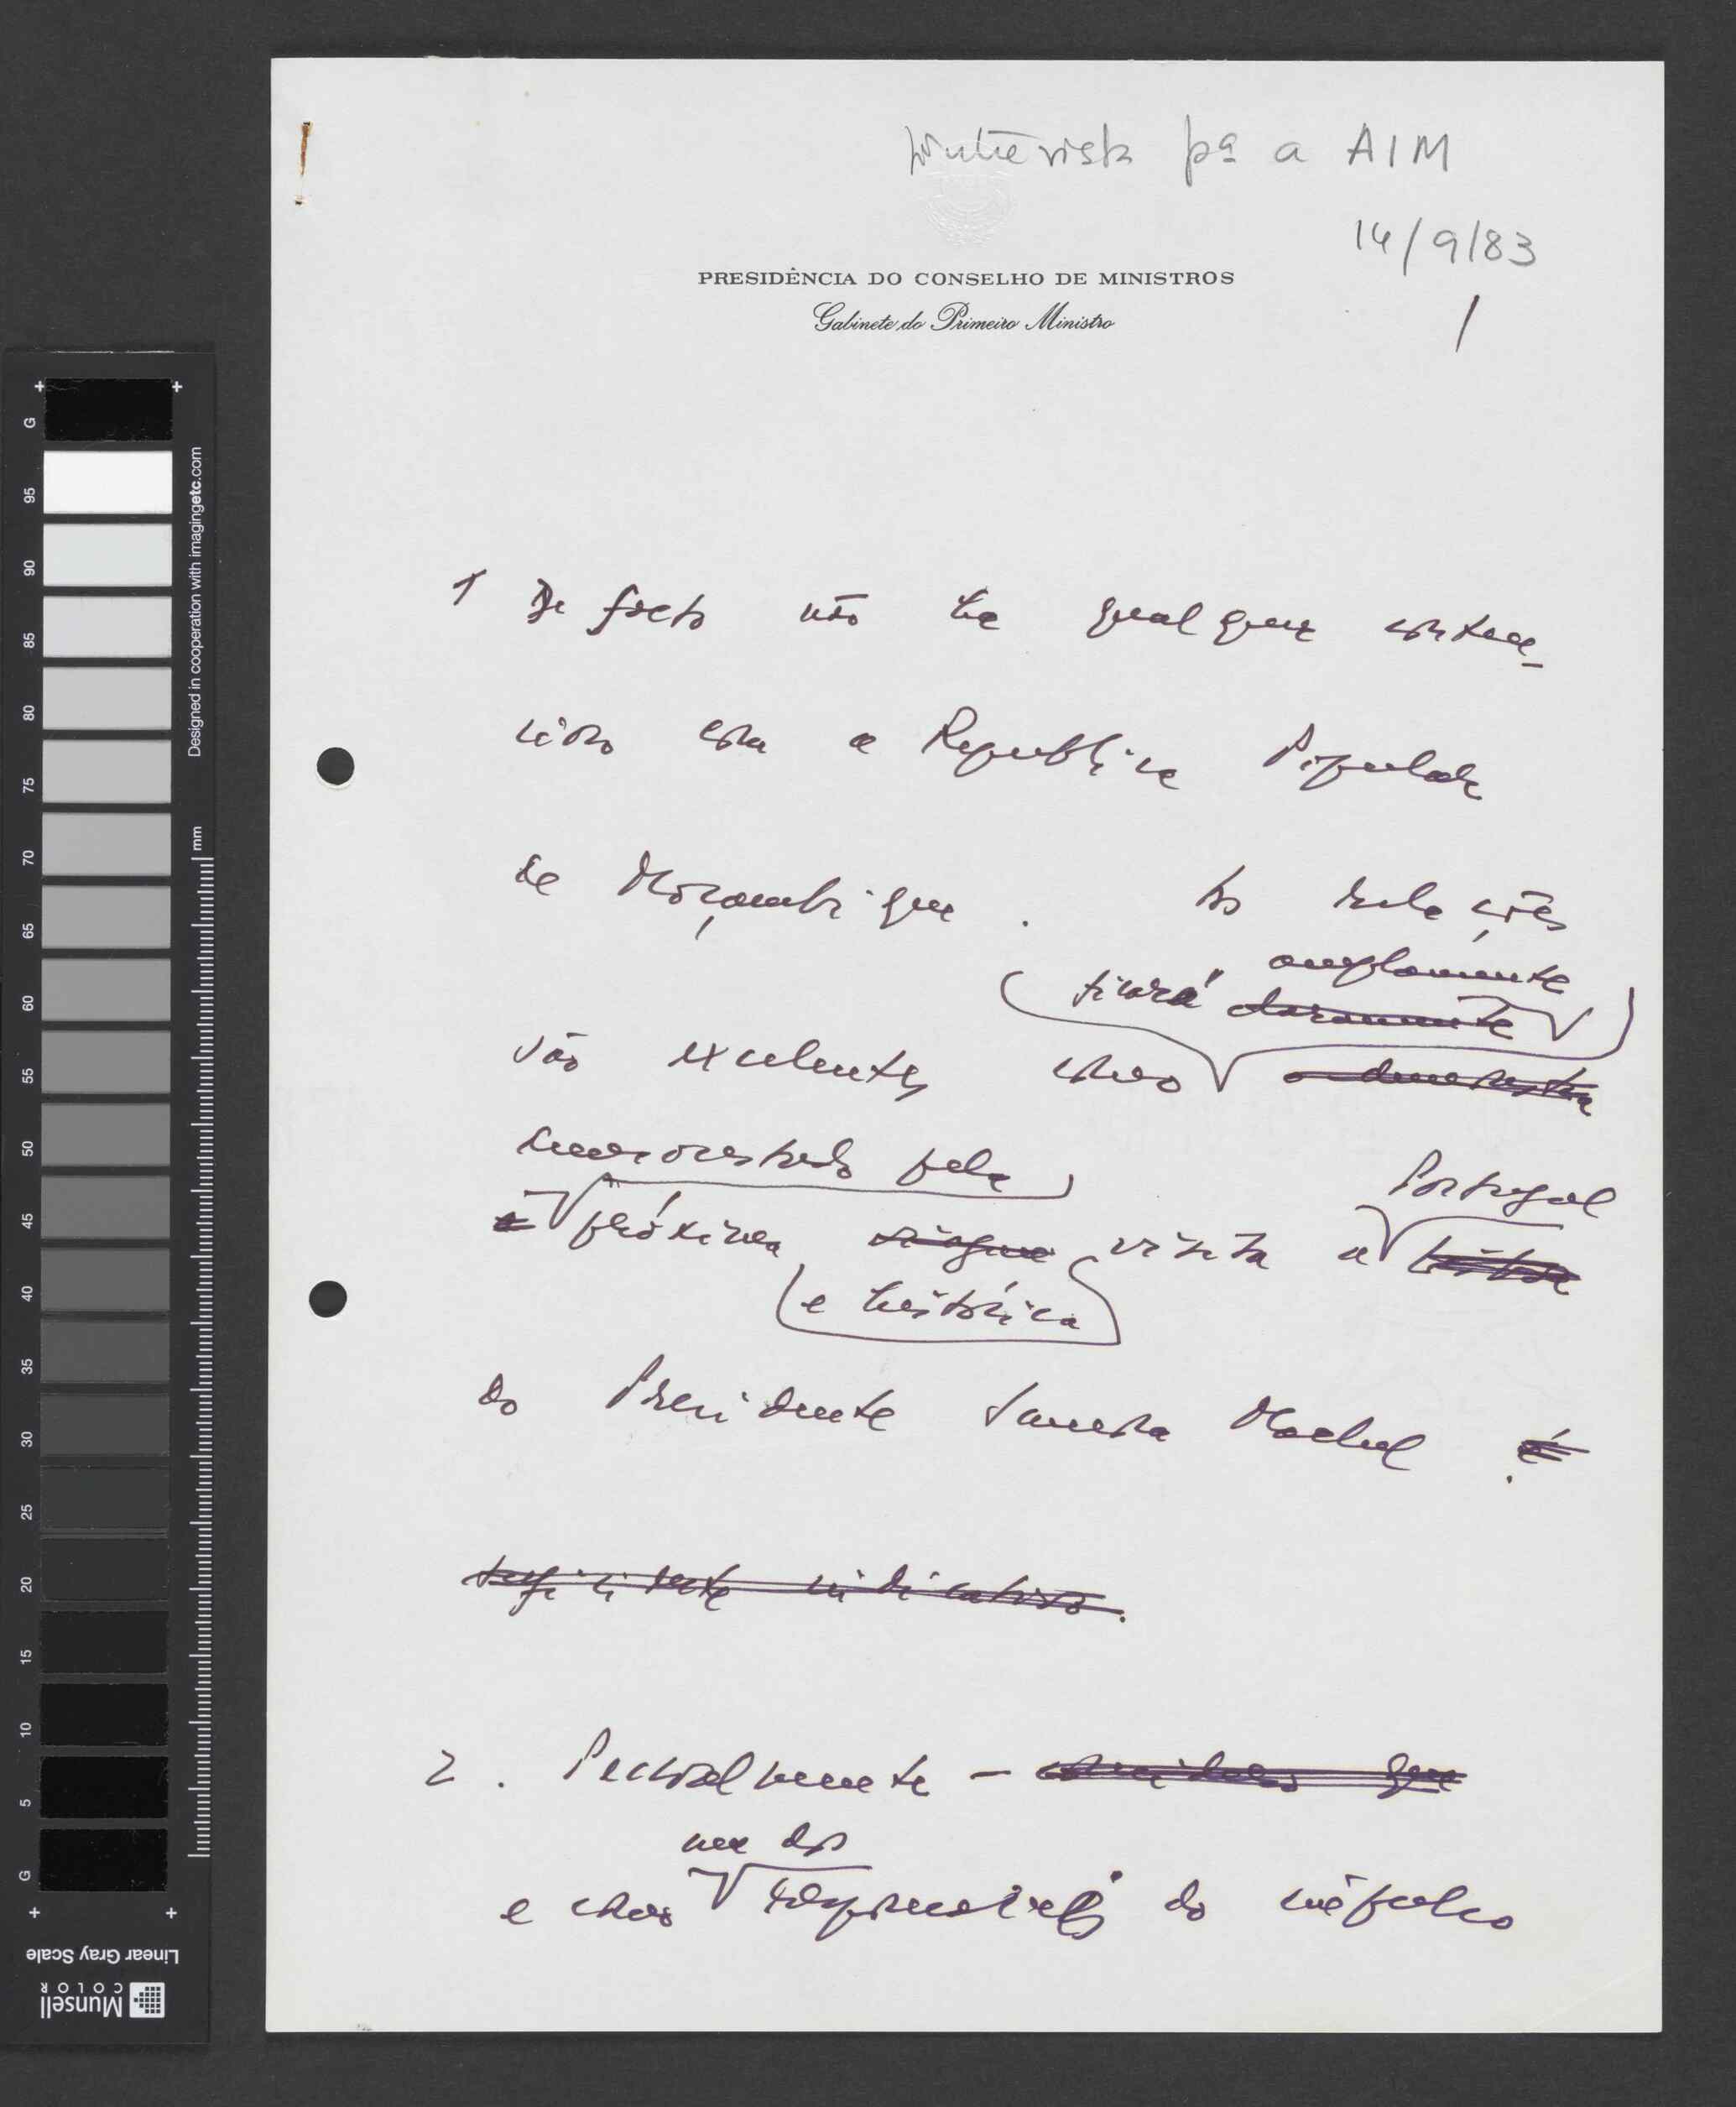 Entrevista pª a AIM
14/9/83
PRESIDÊNCIA DO CONSELHO DE MINISTROS
Gabinete do Primeiro Ministro
1
1 De facto não há qualquer conten-
cioso com a Republica Popular
de Moçambique. As relações
amplamente
ficará claramente
são excelentes como o demonstra
demonstrado pela
Portugal
a próxima visita a Lisboa
e histórica
do Presidente Samora Machel. é
suficiente indicativo.
2. Pessoalmente - considero que
um dos
e como responsáveis do
G 95 90 85 80 75 70 65 60 55 50 45 40 35 30 25 20 15 10 5 G
Designed in cooperation with imagingetc.com
mm
Linear Gray Scale
Munsell
COLOR